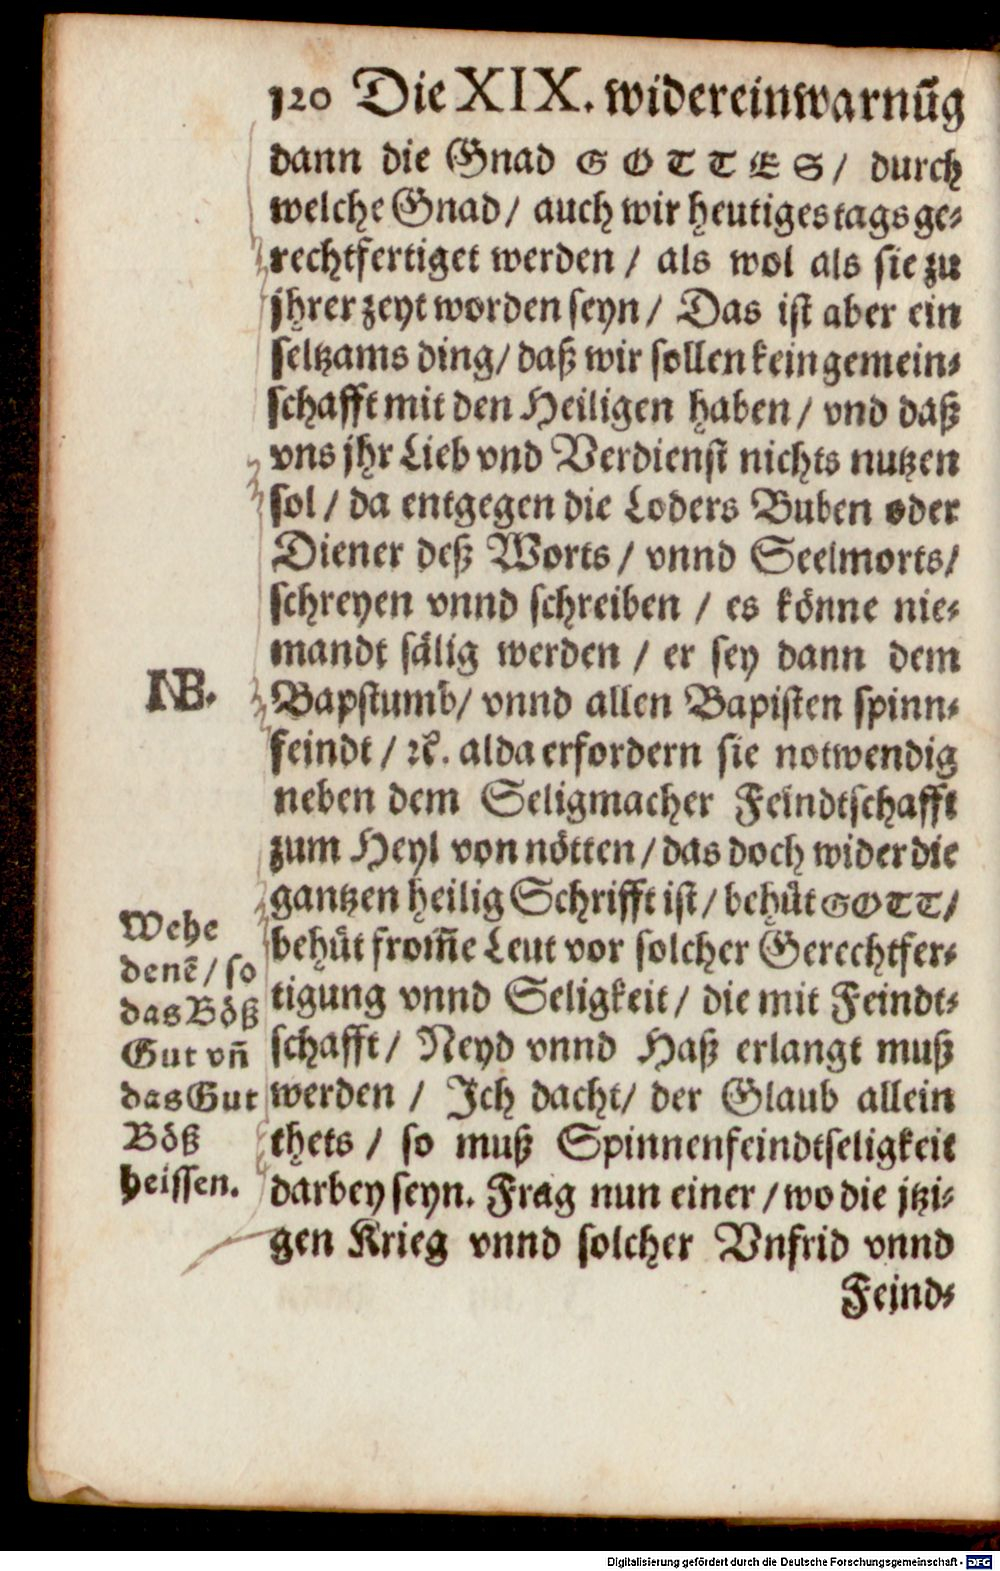 120 Die XIX. widereinwarnūg
dann die Gnad GOTTES/ durch
welche Gnad/ auch wir heutiges tags ge-
rechtfertiget werden / als wol als sie zu
jhrer zeyt worden seyn/ Das ist aber ein
seltzams ding/ daß wir sollen kein gemein-
schafft mit den Heiligen haben/ vnd daß
vns jhr Lieb vnd Verdienst nichts nutzen
sol/ da entgegen die Loders Buben oder
Diener deß Worts/ vnnd Seelmorts/
schreyen vnnd schreiben / es könne nie-
mandt sälig werden / er sey dann dem
NB.
Bapstumb/ vnnd allen Bapisten spinn-
feindt / ꝛc. alda erfordern sie notwendig
neben dem Seligmacher Feindtschafft
zum Heyl von nötten/ das doch wider die
gantzen heilig Schrifft ist/ behüt GOTT/
behüt from̄e Leut vor solcher Gerechtfer-
tigung vnnd Seligkeit/ die mit Feindt-
schafft/ Neyd vnnd Haß erlangt muß
werden / Ich dacht/ der Glaub allein
thets / so muß Spinnenfeindtseligkeit
darbey seyn. Frag nun einer / wo die jtzi-
gen Krieg vnnd solcher Vnfrid vnnd
Feind-
Wehe
denē/ so
das Böß
Gut vn̄
das Gut
Böß
heissen.
Digitalisierung gefördert durch die Deutsche Forschungsgemeinschaft - DFG